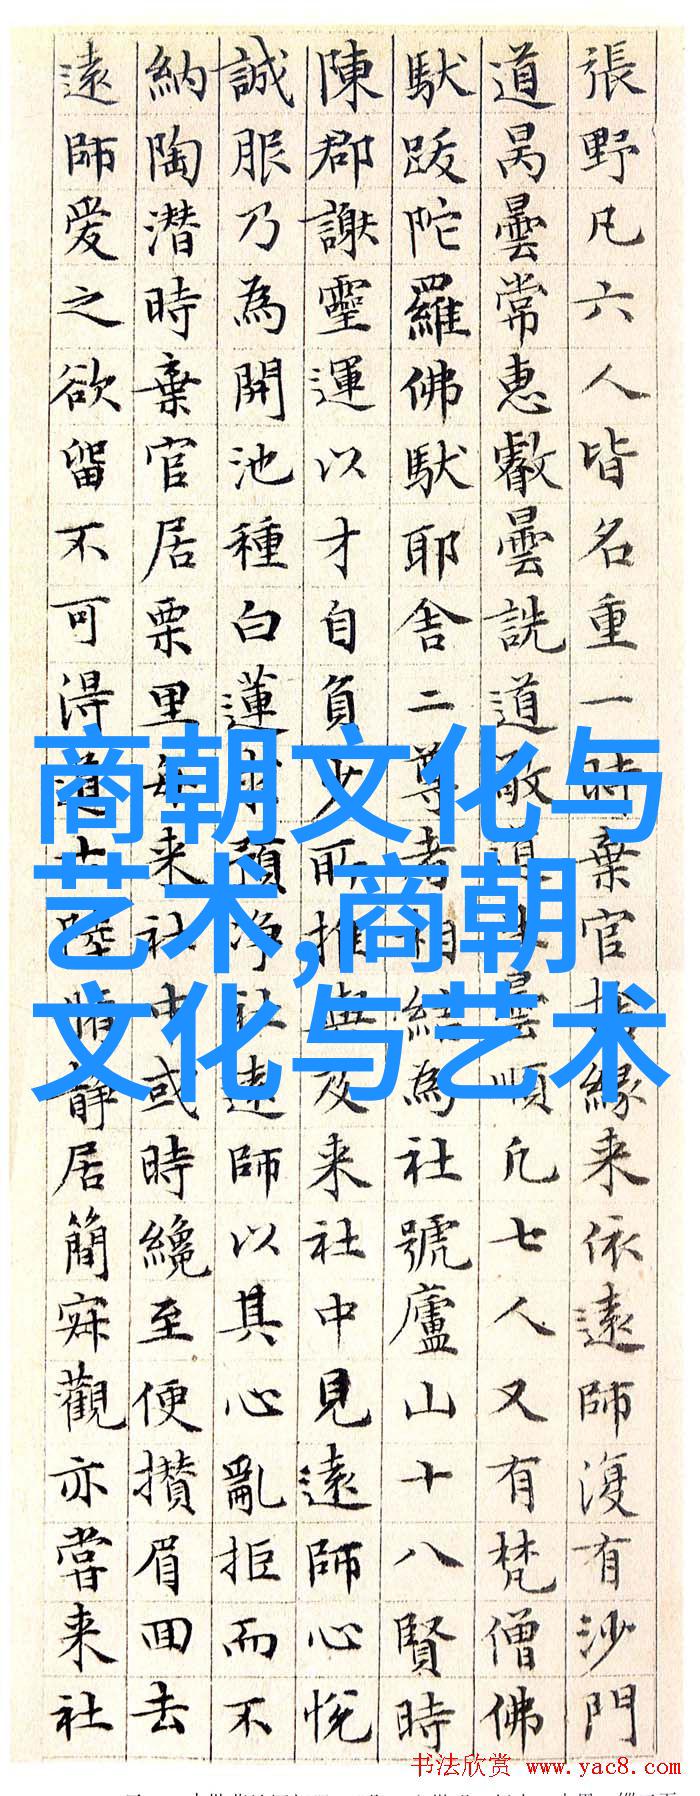 張野凡六人皆名重一時棄官捨緣来依遠師復有沙門
道昺曇常惠叡曇詵道敬道生曇順凡七人又有梵僧佛
馱跋陀羅佛馱耶舍二尊者相結為社號廬山十八賢時
陳郡謝靈運以才自負少所推與及来社中見遠師心悅
誠服乃為開池種白蓮求預淨社遠師以其心亂拒而不
納陶潛時棄官居栗里每来社中或時纔至便攢眉回去
遠師愛之欲留不可得道士陸脩靜居簡寂觀亦嘗来社
商朝文化与
艺术,商朝
文化与艺术
书法欣赏 www.yac8.com